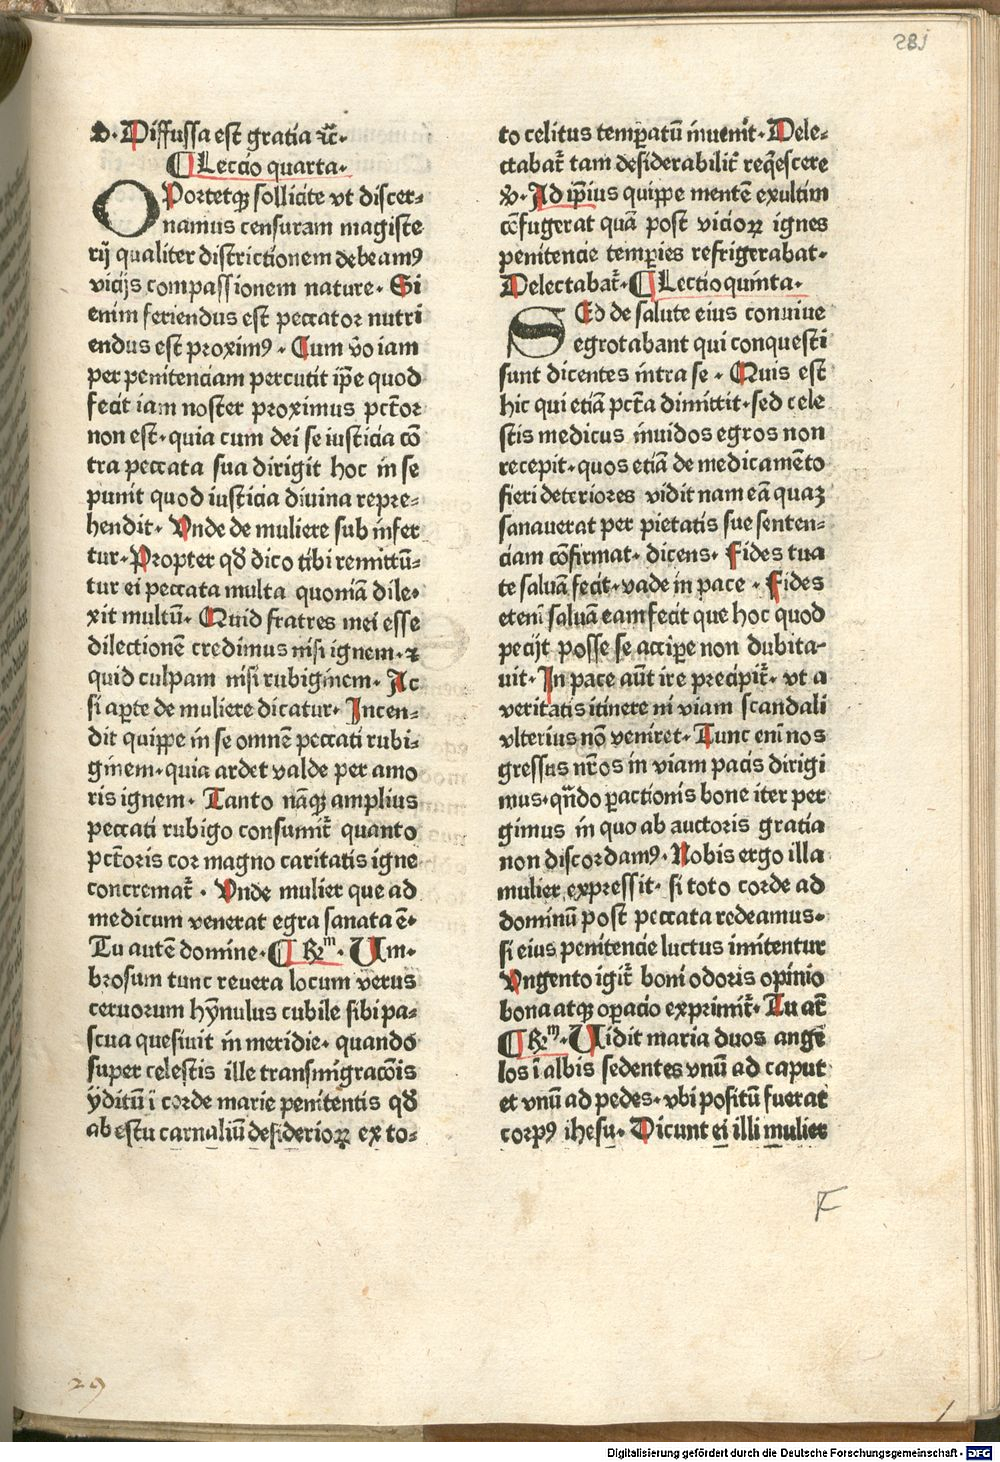 281
v. Diffussa est gratia ꝛc̄.
¶ Lectio quarta.
OPortetqꝫ sollicite vt discer-
namus censuram magiste
rij qualiter districtionem debeamꝰ
vicijs compassionem nature. Si
enim feriendus est peccator nutri
endus est proximꝰ. Cum v̄o iam
per penitenciam percutit ip̄e quod
fecit iam noster proximus pctōr
non est. quia cum dei se iusticia cō
tra peccata sua dirigit hoc in se
punit quod iusticia diuina repre-
hendit. Vnde de muliere sub infer
tur. Propter qd̄ dico tibi remittū-
tur ei peccata multa quoniā dile-
xit multū. Quid fratres mei esse
dilectionē credimus nisi ignem. ⁊
quid culpam nisi rubiginem. Ac
si ap̄te de muliere dicatur. Incen-
dit quippe in se omnē peccati rubi-
ginem. quia ardet valde per amo
ris ignem. Tanto nāqꝫ amplius
peccati rubigo consumit̄ quanto
pctōris cor magno caritatis igne
concremat̄. Vnde mulier que ad
medicum venerat egra sanata ē.
Tu autē domine. ¶ Rm. Vm-
brosum tunc reuera locum verus
ceruorum hÿnulus cubile sibi pa-
scua quesiuit in meridie. quando
super celestis ille transmigracōis
ÿditū ī corde marie penitentis qd̄
ab estu carnaliū desiderioꝝ ex to-
to celitus temp̄atū inuenit. Dele-
ctabat̄ tam desiderabilit̄ req̄escere
v. Ad ip̄ius quippe mentē exultim
cōfugerat quā post vicioꝝ ignes
penitencie temp̄ies refrigerabat.
Delectabat̄. ¶ Lectio quinta.
SEd de salute eius conuiue
egrotabant qui conquesti
sunt dicentes intra se. Quis est
hic qui etiā pctā dimittit. sed cele
stis medicus inuidos egros non
recepit. quos etiā de medicamēto
fieri deteriores vidit nam eā quaꝫ
sanauerat per pietatis sue senten-
ciam cōfirmat. dicens. Fides tua
te saluā fecit. vade in pace. Fides
etenī saluā eam fecit que hoc quod
pecijt posse se accip̄e non dubita-
uit. In pace aūt ire precipit̄. vt a
veritatis itinere ni viam scandali
vlterius nō veniret. Tunc enī nos
gressus nr̄os in viam pacis dirigi
mus. qn̄do p̄actionis bone iter per
gimus in quo ab auctoris gratia
non discordamꝰ. Nobis ergo illa
mulier expressit. si toto corde ad
dominū post peccata redeamus.
si eius penitencie luctus imitentur
Vngento igit̄ boni odoris opinio
bona atqꝫ op̄acio exprimit̄. Tu at̄
¶ Rm. Vidit maria duos ange
los ī albis sedentes vnū ad caput
et vnū ad pedes. vbi positū fuerat
corpꝰ ihesu. Dicunt ei illi mulier
F
29
1
Digitalisierung gefördert durch die Deutsche Forschungsgemeinschaft - DFG